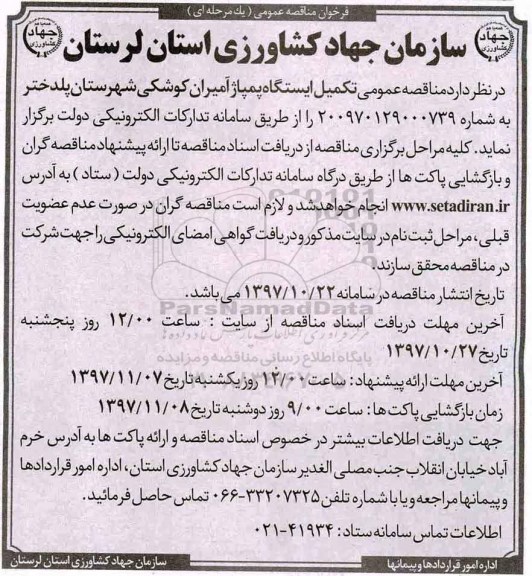 فرخوان مناقصه عمومی (یک مرحله ای)
جهاد کشاورزی
سازمان جهاد کشاورزی استان لرستان
جهاد کشاورزی
در نظر دارد مناقصه عمومی تکمیل ایستگاه پمپاژ آمیران کوشکی شهرستان پلدختر
به شماره ۲۰۰۹۷۰۱۲۹۰۰۰۷۳۹ را از طریق سامانه تدارکات الکترونیکی دولت برگزار
نماید. کلیه مراحل برگزاری مناقصه از دریافت اسناد مناقصه تا ارائه پیشنهاد مناقصه گران
و بازگشایی پاکت ها از طریق درگاه سامانه تدارکات الکترونیکی دولت (ستاد) به آدرس
www.setadiran.ir انجام خواهد شد و لازم است مناقصه گران در صورت عدم عضویت
قبلی، مراحل ثبت نام در سایت مذکور و دریافت گواهی امضای الکترونیکی را جهت شرکت
در مناقصه محقق سازند.
تاریخ انتشار مناقصه در سامانه ۱۳۹۷/۱۰/۲۲ می باشد.
ParsNamadData
آخرین مهلت دریافت اسناد مناقصه از سایت : ساعت ۱۲/۰۰ روز پنجشنبه
تاریخ ۱۳۹۷/۱۰/۲۷
پایگاه اطلاع رسانی مناقصه و مزایده
آخرین مهلت ارائه پیشنهاد: ساعت ۱۴/۰۰ روز یکشنبه تاریخ ۱۳۹۷/۱۱/۰۷
زمان بازگشایی پاکت ها: ساعت ۹/۰۰ روز دوشنبه تاریخ ۱۳۹۷/۱۱/۰۸
جهت دریافت اطلاعات بیشتر در خصوص اسناد مناقصه و ارائه پاکت ها به آدرس خرم
آباد خیابان انقلاب جنب مصلی الغدیر سازمان جهاد کشاورزی استان، اداره امور قراردادها
و پیمانها مراجعه و یا با شماره تلفن ۳۳۲۰۷۳۲۵-۰۶۶ تماس حاصل فرمائید.
اطلاعات تماس سامانه ستاد: ۴۱۹۳۴-۰۲۱
اداره امور قراردادها و پیمانها
سازمان جهاد کشاورزی استان لرستان